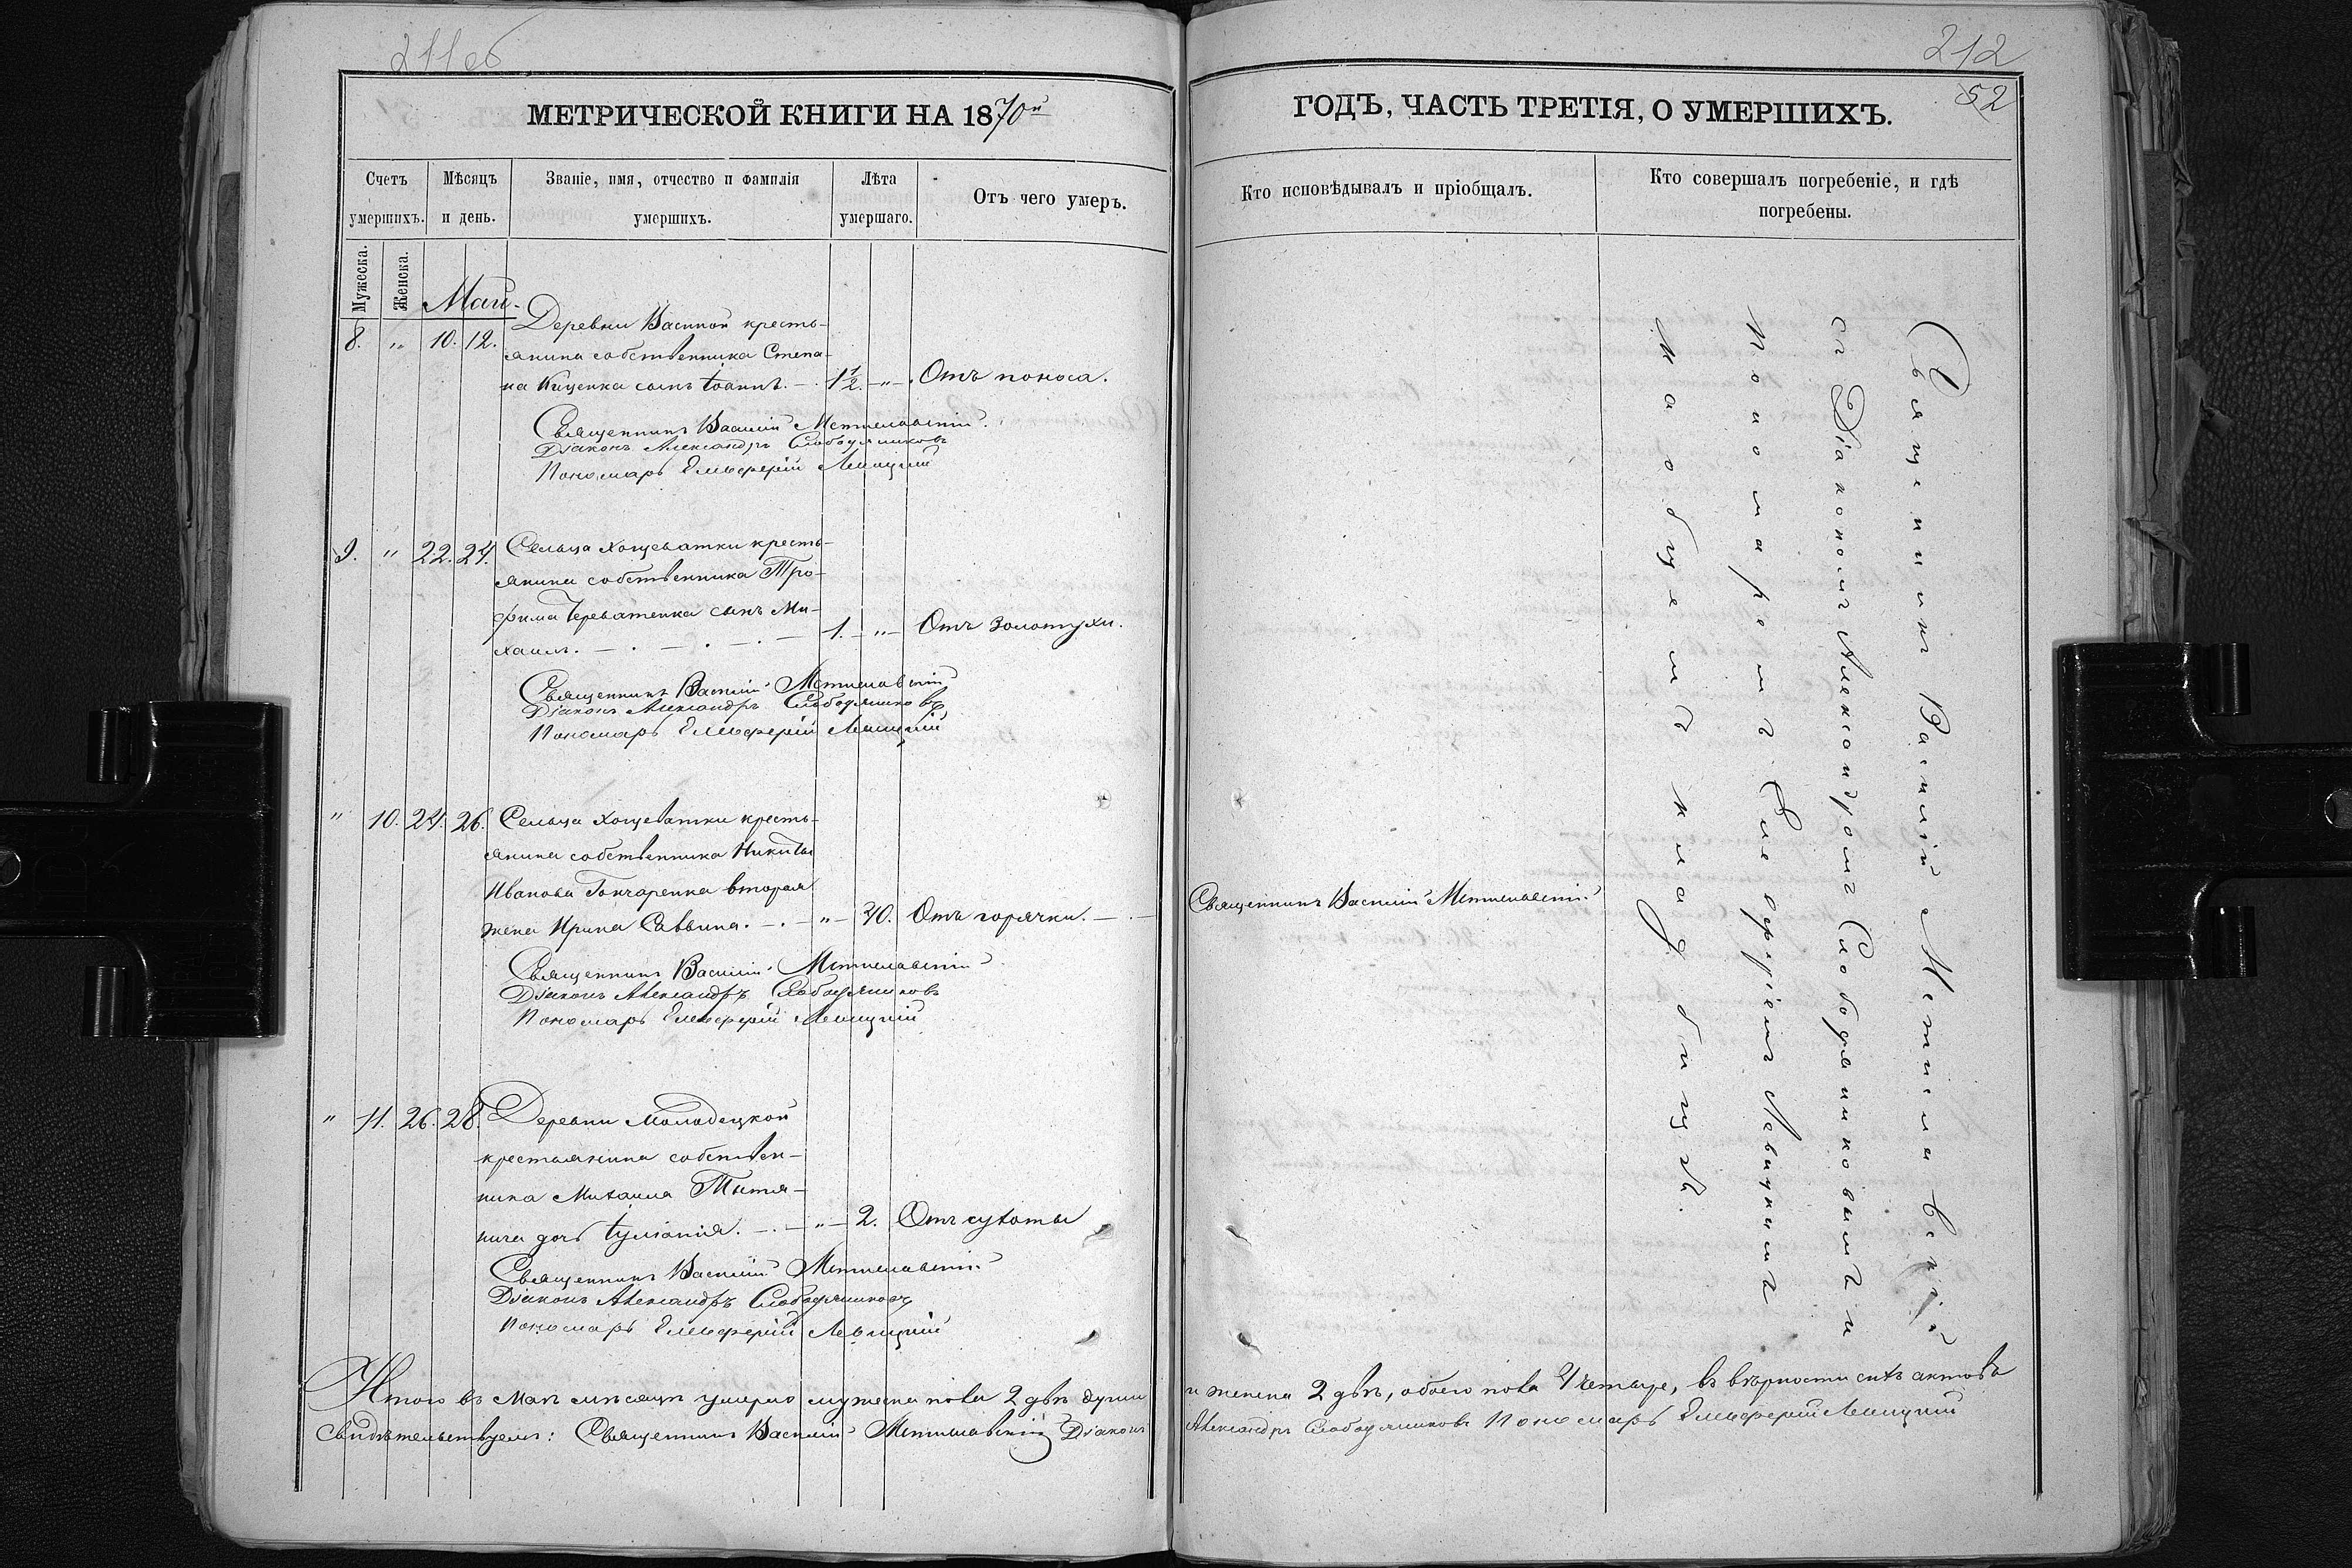 211об
МЕТРИЧЕСКОЙ КНИГИ НА 1870й
Счетъ умершихъ.
Мѣсяцъ и день.
Званіе, имя, отчество и фамилія умершихъ.
Лѣта умершаго.
Отъ чего умеръ.
Мужеска.
Женска.
Май.
8. " 10. 12. Деревни Васиной кресть-
янина собственника Степа-
на Куценка сынъ Іоаннъ. 1 1/2. " Отъ поноса.
Священникъ Василій Мстиславскій
Діаконъ Александръ Слободяниковъ
Пономарь Елевферій Левицкій
9. " 22. 24. Сельца Хощеватки кресть-
янина собственника Тро-
фима Череватенка сынъ Ми-
хаилъ. 1. " Отъ золотухи.
Священникъ Василій Мстиславскій
Діаконъ Александръ Слободяниковъ
Пономарь Елевферій Левицкій
" 10. 24. 26. Сельца Хощеватки кресть-
янина собственника Никиты
Иванова Гончаренка вторая
жена Ирина Саввина. " 70. Отъ горячки.
Священникъ Василій Мстиславскій
Діаконъ Александръ Слободяниковъ
Пономарь Елевферій Левицкій
" 11. 26. 28. Деревни Молодецкой
крестьянина собствен-
ника Михаила Тытя-
нича дочь Іуліанія. " 2. Отъ сухоты
Священникъ Василій Мстиславскій
Діаконъ Александръ Слободяниковъ
Пономарь Елевферій Левицкій
Итого въ Маѣ мѣсяцѣ умерло мужеска пола 2 двѣ души
Свидѣтельствуемъ: Священникъ Василій Мстиславскій Діаконъ
212
52
ГОДЪ, ЧАСТЬ ТРЕТІЯ, О УМЕРШИХЪ.
Кто исповѣдывалъ и пріобщалъ.
Кто совершалъ погребеніе, и гдѣ
погребены.
Священникъ Василій Мстиславскій
Священникъ Василій Мстиславскій
съ Діакономъ Александромъ Слободяниковымъ и
Пономаремъ Елевферіемъ Левицкимъ
На общемъ кладбищѣ.
и женска 2 двѣ, обоего пола 4 четыре, въ вѣрности сихъ актовъ
Александръ Слободяниковъ Пономарь Елевферій Левицкій